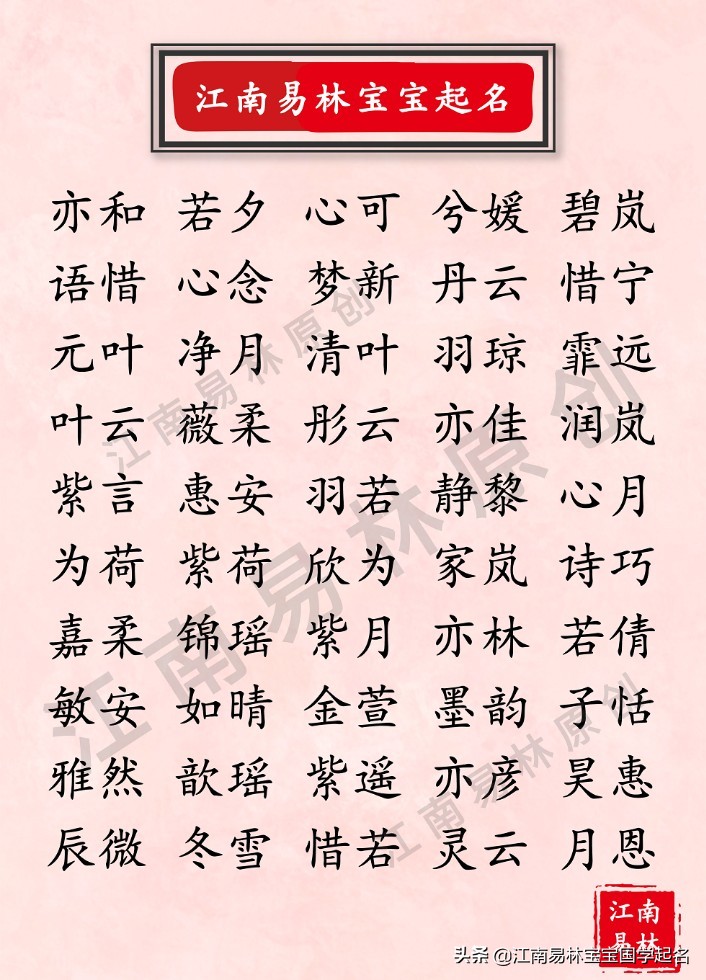 江南易林宝宝起名
亦和 若夕 心可 兮媛 碧岚
语惜 心念 梦新 丹云 惜宁
元叶 净月 清叶 羽琼 霏远
叶云 薇柔 彤云 亦佳 润岚
紫言 惠安 羽若 静黎 心月
为荷 紫荷 欣为 家岚 诗巧
嘉柔 锦瑶 紫月 亦林 若倩
敏安 如晴 金萱 墨韵 子恬
雅然 歆瑶 紫遥 亦彦 昊惠
辰微 冬雪 惜若 灵云 月恩
江南易林原创
江南易林原创
江南易林原创
江南
易林
头条 @江南易林宝宝国学起名